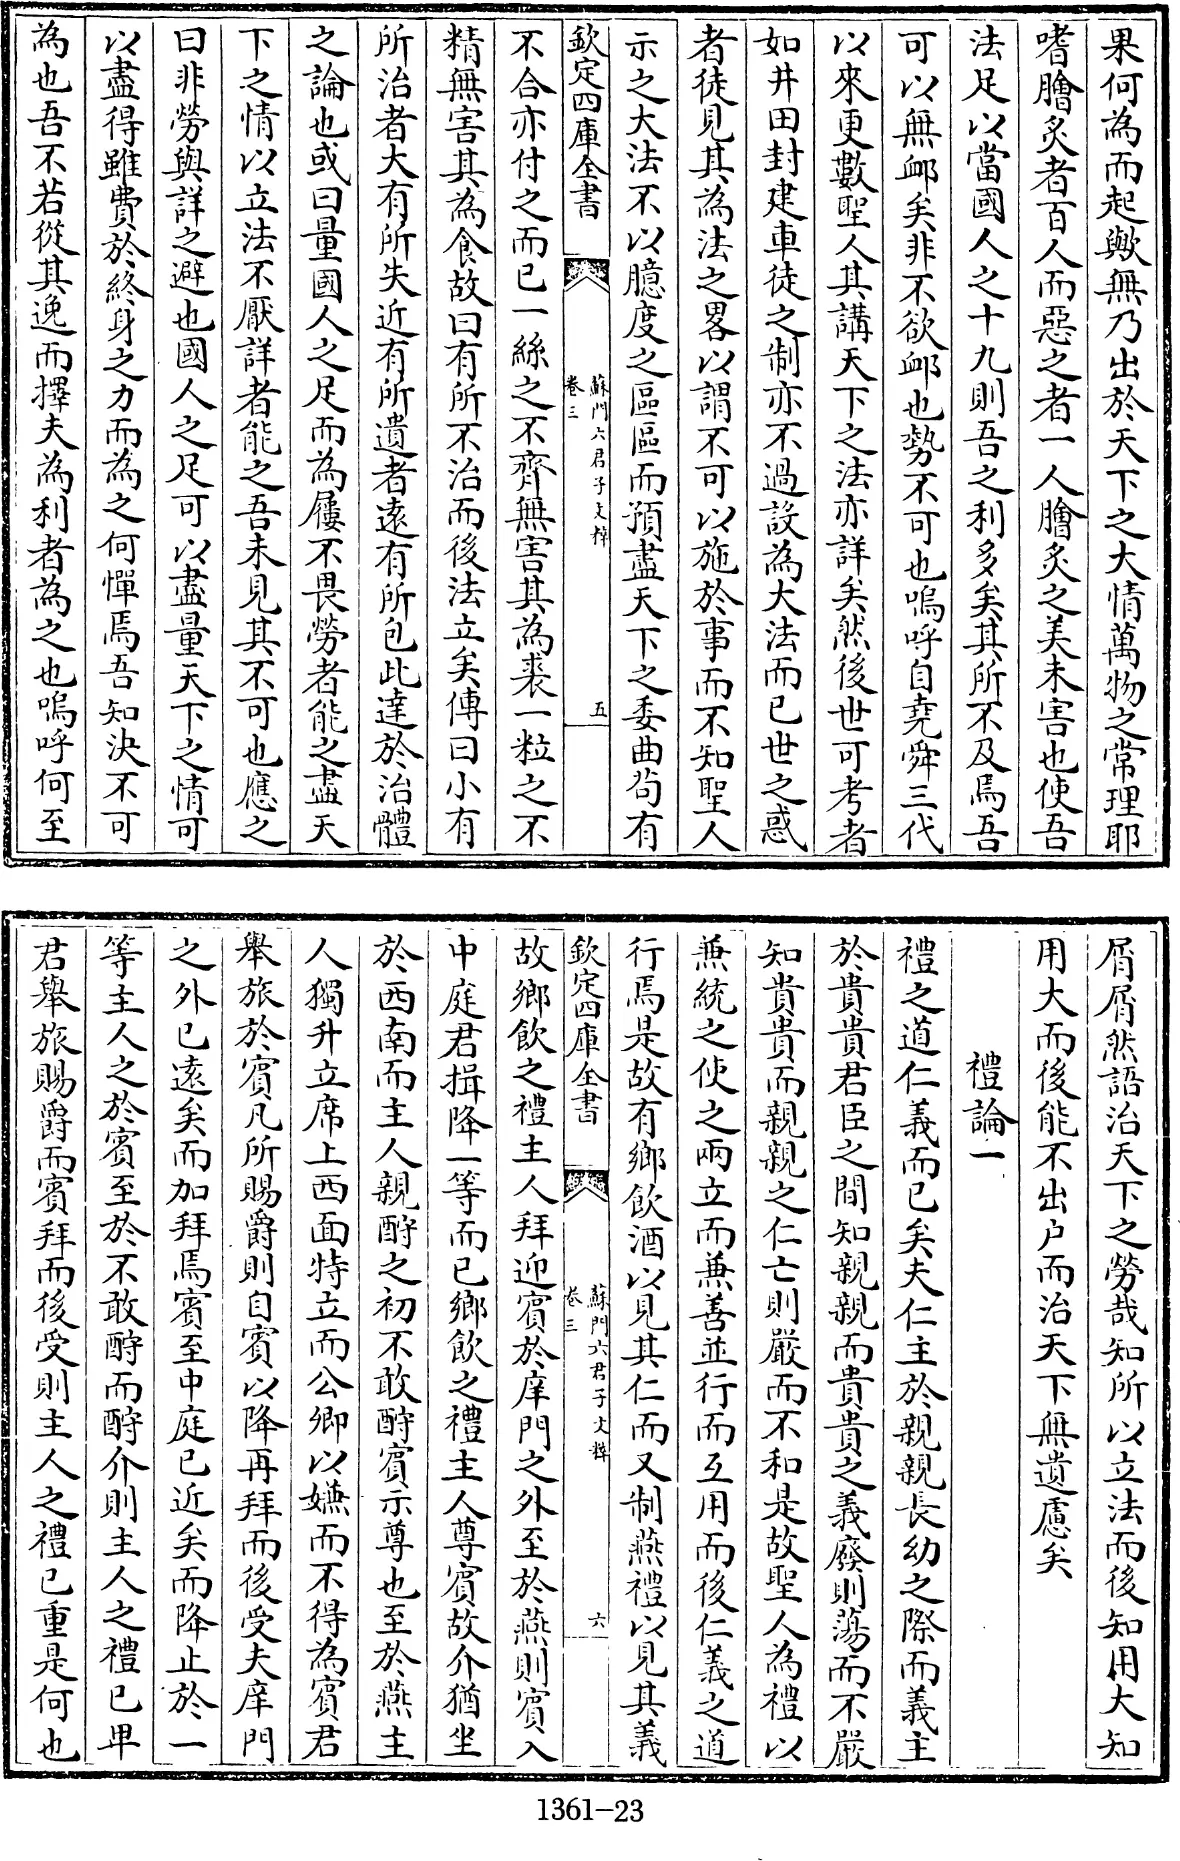 果何為而起歟無乃出於天下之大情萬物之常理耶
嗜膾炙者百人而惡之者一人膾炙之美未害也使吾
法足以當國人之十九則吾之利多矣其所不及焉吾
可以無䘏矣非不欲䘏也勢不可也嗚呼自堯舜三代
以來更數聖人其講天下之法亦詳矣然後世可考者
如井田封建車徒之制亦不過設為大法而已世之惑
者徒見其為法之畧以謂不可以施於事而不知聖人
示之大法不以臆度之區區而預盡天下之委曲茍有
欽定四庫全書
蘇門六君子文粹
卷三
五
不合亦付之而已一絲之不齊無害其為裘一粒之不
精無害其為食故曰有所不治而後法立矣傳曰小有
所治者大有所失近有所遺者遠有所包此達於治體
之論也或曰量國人之足而為屨不畏勞者能之盡天
下之情以立法不厭詳者能之吾未見其不可也應之
曰非勞與詳之避也國人之足可以盡量天下之情可
以盡得雖費於終身之力而為之何憚焉吾知決不可
為也吾不若從其逸而擇夫為利者為之也嗚呼何至
屑屑然語治天下之勞哉知所以立法而後知用大知
用大而後能不出户而治天下無遺慮矣
禮論一
禮之道仁義而已矣夫仁主於親親長幼之際而義主
於貴貴君臣之間知親親而貴貴之義廢則蕩而不嚴
知貴貴而親親之仁亡則嚴而不和是故聖人為禮以
兼統之使之兩立而兼善並行而互用而後仁義之道
行焉是故有鄉飲酒以見其仁而又制燕禮以見其義
欽定四庫全書
蘇門六君子文粹
卷三
六
故鄉飲之禮主人拜迎賓於庠門之外至於燕則賓入
中庭君揖降一等而已鄉飲之禮主人尊賓故介猶坐
於西南而主人親酧之初不敢酧賓示尊也至於燕主
人獨升立席上西面特立而公卿以嫌而不得為賓君
舉旅於賓凡所賜爵則自賓以降再拜而後受夫庠門
之外已遠矣而加拜焉賓至中庭已近矣而降止於一
等主人之於賓至於不敢酧而酧介則主人之禮已卑
君舉旅賜爵而賓拜而後受則主人之禮已重是何也
1361-23